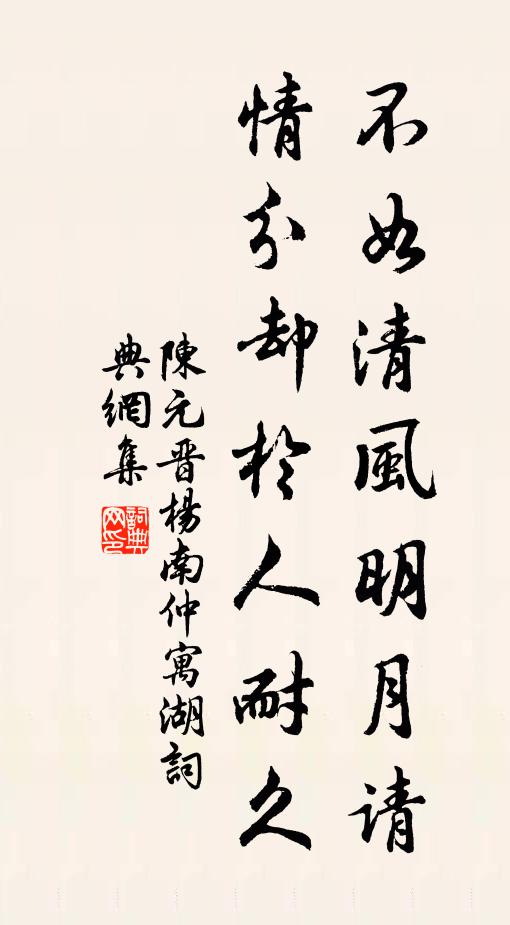 不如清風明月请
情分却於人耐久
陳元晋楊南仲寓湖詞
典網集
詞典网印